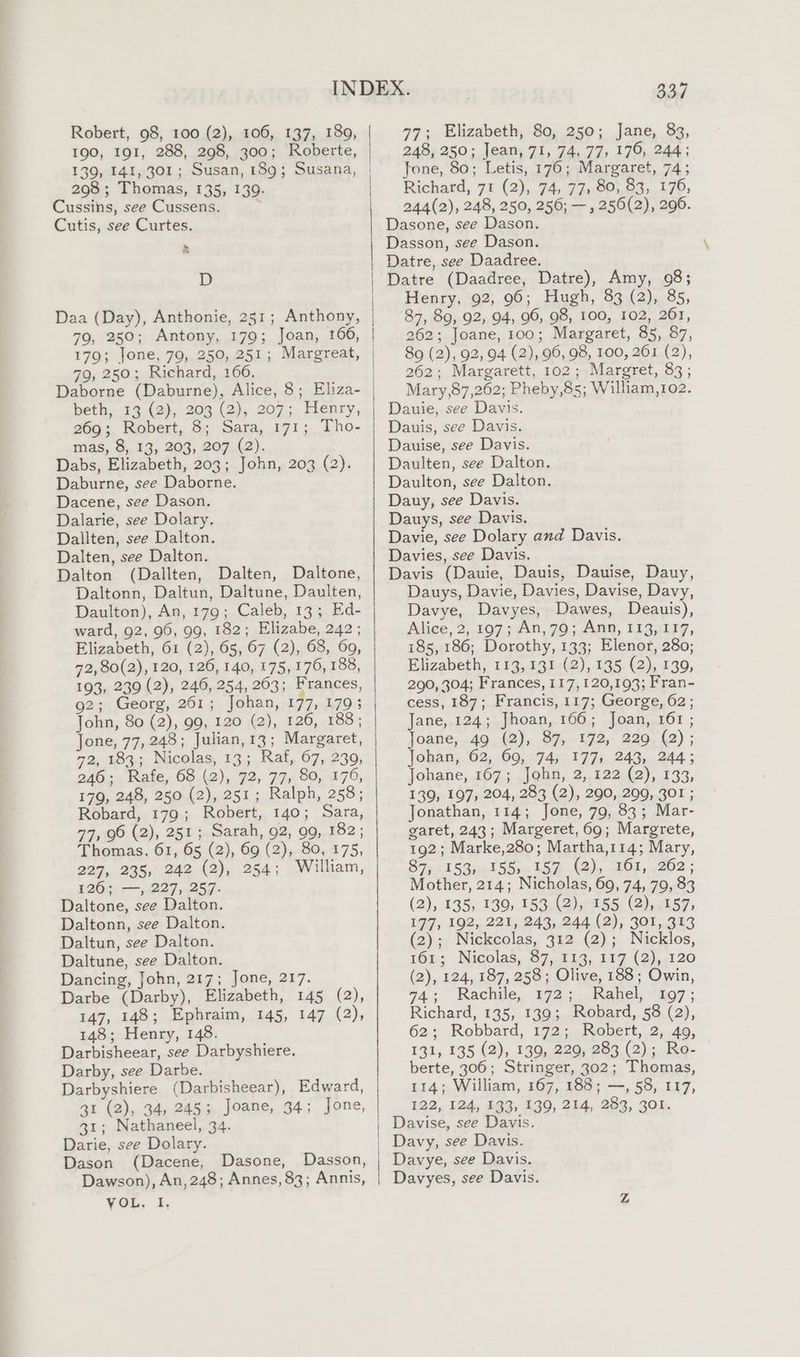 INDEX.
337
Robert, 98, 100 (2), 106, 137, 189,
190, 191, 288, 298, 300; Roberte,
139, 141, 301; Susan, 189; Susana,
298; Thomas, 135, 139.
Cussins, see Cussens.
Cutis, see Curtes.
D
Daa (Day), Anthonie, 251; Anthony,
79, 250; Antony, 179; Joan, 166,
179; Jone, 79, 250, 251; Margreat,
79, 250; Richard, 166.
Daborne (Daburne), Alice, 8; Eliza-
beth, 13 (2), 203 (2), 207; Henry,
269; Robert, 8; Sara, 171; Tho-
mas, 8, 13, 203, 207 (2).
Dabs, Elizabeth, 203; John, 203 (2).
Daburne, see Daborne.
Dacene, see Dason.
Dalarie, see Dolary.
Dallten, see Dalton.
Dalten, see Dalton.
Dalton (Dallten, Dalten, Daltone,
Daltonn, Daltun, Daltune, Daulten,
Daulton), An, 179; Caleb, 13; Ed-
ward, 92, 96, 99, 182; Elizabe, 242;
Elizabeth, 61 (2), 65, 67 (2), 68, 69,
72, 80(2), 120, 126, 140, 175, 176, 188,
193, 239 (2), 246, 254, 263; Frances,
92; Georg, 261; Johan, 177, 179;
John, 80 (2), 99, 120 (2), 126, 188;
Jone, 77, 248; Julian, 13; Margaret,
72, 183; Nicolas, 13; Raf, 67, 239,
246; Rafe, 68 (2), 72, 77, 80, 176,
179, 248, 250 (2), 251; Ralph, 258;
Robard, 179; Robert, 140; Sara,
77, 96 (2), 251; Sarah, 92, 99, 182;
Thomas, 61, 65 (2), 69 (2), 80, 175,
227, 235, 242 (2), 254; William,
126; —, 227, 257.
Daltone, see Dalton.
Daltonn, see Dalton.
Daltun, see Dalton.
Daltune, see Dalton.
Dancing, John, 217; Jone, 217.
Darbe (Darby), Elizabeth, 145 (2),
147, 148; Ephraim, 145, 147 (2),
148; Henry, 148.
Darbisheear, see Darbyshiere.
Darby, see Darbe.
Darbyshiere (Darbisheear), Edward,
31 (2), 34, 245; Joane, 34; Jone,
31; Nathaneel, 34.
Darie, see Dolary.
Dason (Dacene, Dasone, Dasson,
Dawson), An, 248; Annes, 83; Annis,
VOL. I.
77; Elizabeth, 80, 250; Jane, 83,
248, 250; Jean, 71, 74, 77, 176, 244;
Jone, 80; Letis, 176; Margaret, 74;
Richard, 71 (2), 74, 77, 80, 83, 176,
244(2), 248, 250, 256; —, 256(2), 296.
Dasone, see Dason.
Dasson, see Dason.
Datre, see Daadree.
Datre (Daadree, Datre), Amy, 98;
Henry, 92, 96; Hugh, 83 (2), 85,
87, 89, 92, 94, 96, 98, 100, 102, 261,
262; Joane, 100; Margaret, 85, 87,
89 (2), 92, 94 (2), 96, 98, 100, 261 (2),
262; Margarett, 102; Margret, 83;
Mary, 87, 262; Pheby, 85; William, 102.
Dauie, see Davis.
Dauis, see Davis.
Dauise, see Davis.
Daulten, see Dalton.
Daulton, see Dalton.
Dauy, see Davis.
Dauys, see Davis.
Davie, see Dolary and Davis.
Davies, see Davis.
Davis (Dauie, Dauis, Dauise, Dauy,
Dauys, Davie, Davies, Davise, Davy,
Davye, Davyes, Dawes, Deauis),
Alice, 2, 197; An, 79; Ann, 113, 117,
185, 186; Dorothy, 133; Elenor, 280;
Elizabeth, 113, 131 (2), 135 (2), 139,
290, 304; Frances, 117, 120, 193; Fran-
cess, 187; Francis, 117; George, 62;
Jane, 124; Jhoan, 166; Joan, 161;
Joane, 49 (2), 87, 172, 229 (2);
Johan, 62, 69, 74, 177, 243, 244;
Johane, 167; John, 2, 122 (2), 133,
139, 197, 204, 283 (2), 290, 299, 301;
Jonathan, 114; Jone, 79, 83; Mar-
garet, 243; Margeret, 69; Margrete,
192; Marke, 280; Martha, 114; Mary,
87, 153, 155, 157 (2), 161, 262;
Mother, 214; Nicholas, 69, 74, 79, 83
(2), 135, 139, 153 (2), 155 (2), 157,
177, 192, 221, 243, 244 (2), 301, 313
(2); Nickcolas, 312 (2); Nicklos,
161; Nicolas, 87, 113, 117 (2), 120
(2), 124, 187, 258; Olive, 188; Owin,
74; Rachile, 172; Rahel, 197;
Richard, 135, 139; Robard, 58 (2),
62; Robbard, 172; Robert, 2, 49,
131, 135 (2), 139, 229, 283 (2); Ro-
berte, 306; Stringer, 302; Thomas,
114; William, 167, 188; —, 58, 117,
122, 124, 133, 139, 214, 283, 301.
Davise, see Davis.
Davy, see Davis.
Davye, see Davis.
Davyes, see Davis.
Z